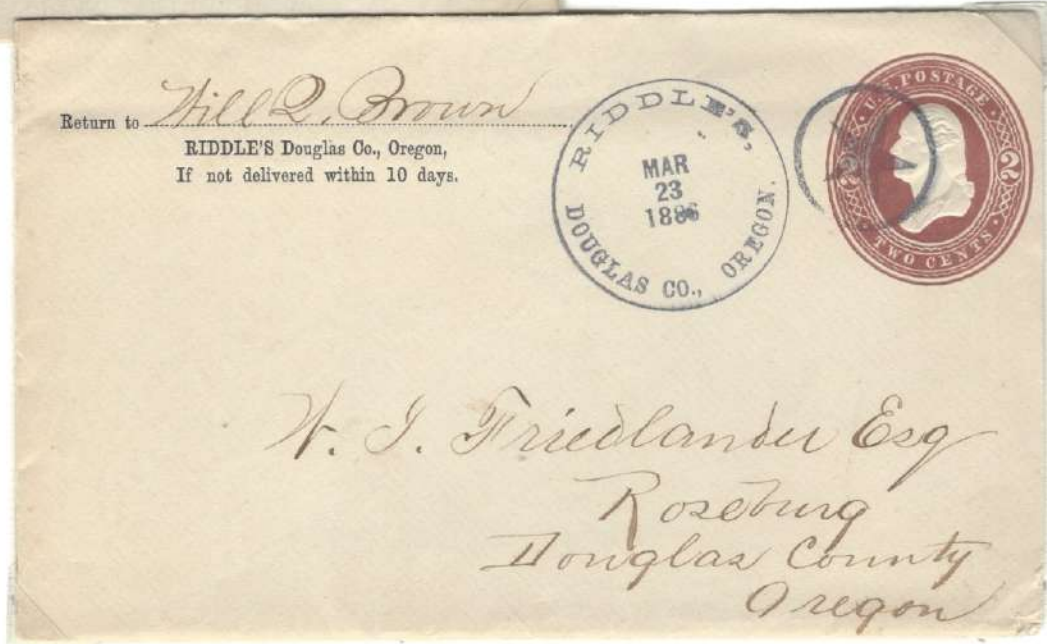 Return to Will Q. Brown
RIDDLE'S Douglas Co., Oregon,
If not delivered within 10 days.
RIDDLE'S,
MAR
23
1886
DOUGLAS CO., OREGON.
U.S. POSTAGE
2 2
TWO CENTS.
W. I. Friedlander Esq
Roseburg
Douglas County
Oregon